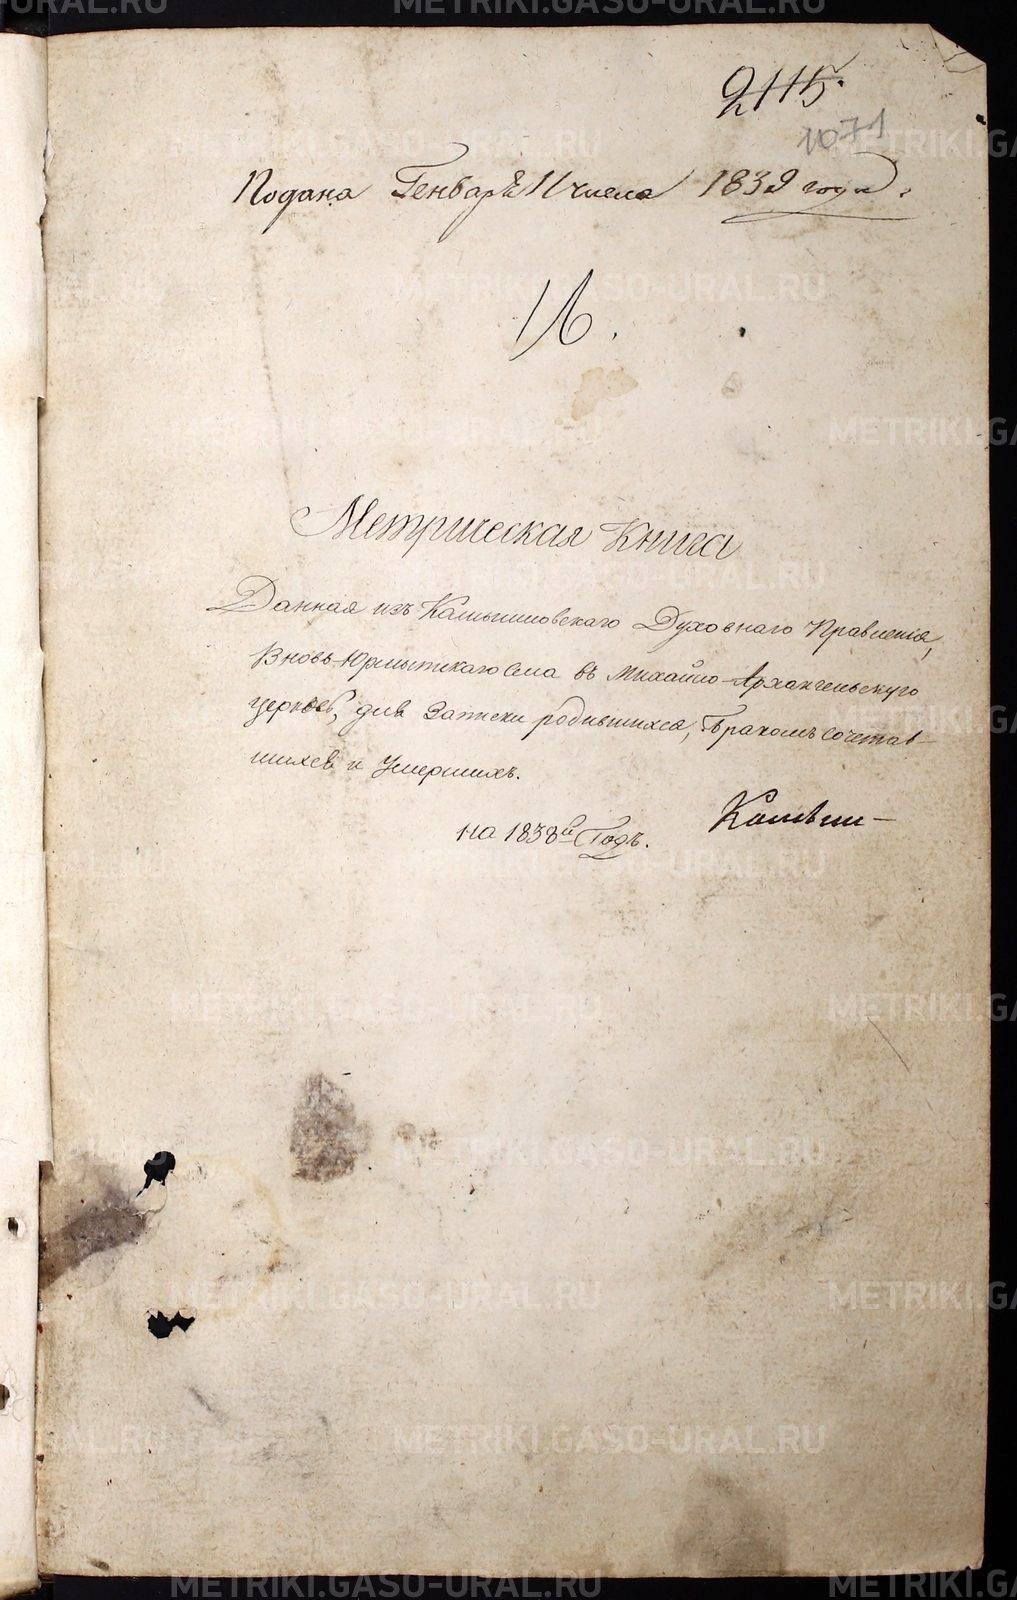 2115.
1071
Подана Генваръ 11 числа 1839 года.
16.
Метрическая Книга
Данная изъ Камышловскаго Духовнаго Правленія,
Вновь-Юрмытскаго села въ Михайло-Архангельскую
церковь, для Записки родившихся, Бракомъ сочетав-
шихся и Умершихъ.
на 1838й Годъ.
METRIKI.GASO-URAL.RU